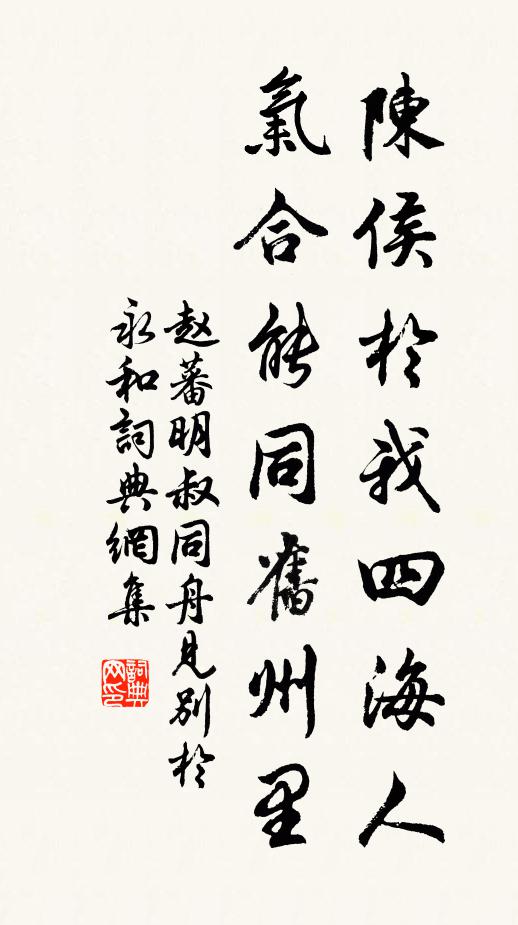 陳侯於我四海人
氣合能同舊州里
赵蕃明叔同舟見别於
永和詞典網集
詞典网印